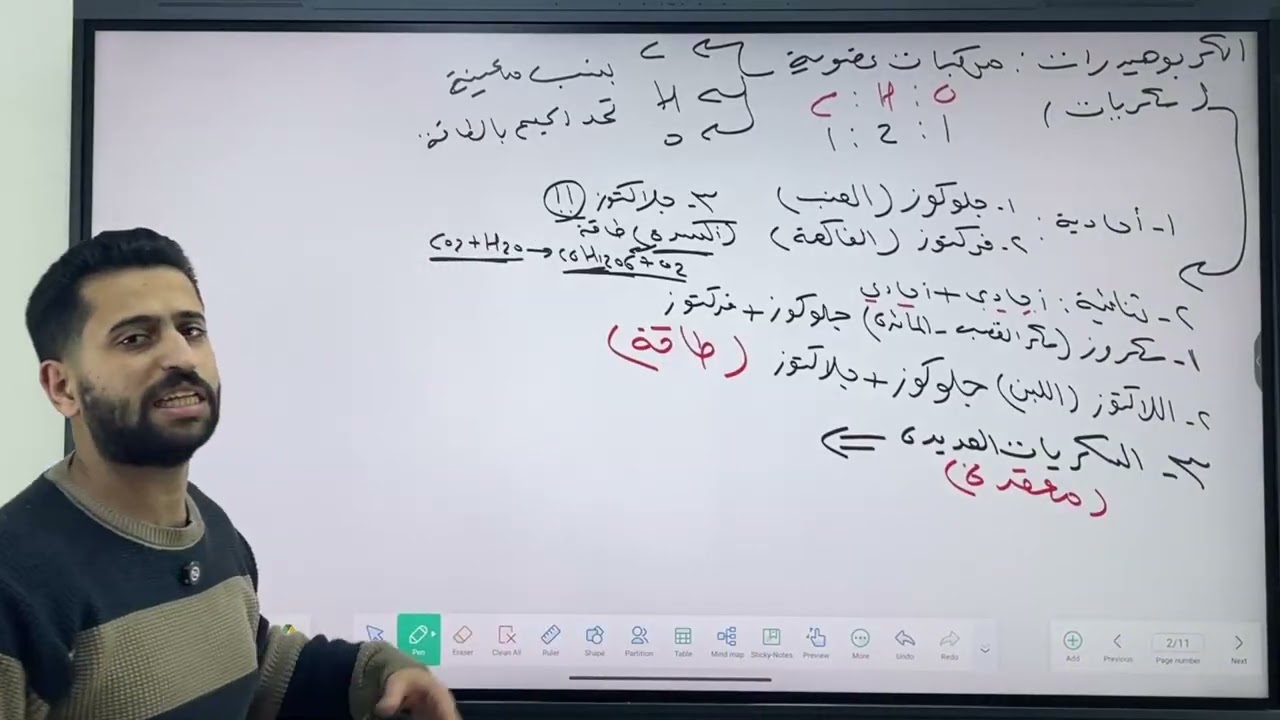 الكربوهيدرات : مركبات عضوية C
(سكريات) C : H : O H بنسب معينة
1 : 2 : 1 O تحد الجسم بالطاقة
١- أحادية : ١. جلوكوز (العنب) ٣- جلاكتوز 11
٢. فركتوز (الفاكهة) طاقة
CO2 + H2O → C6H12O6 + O2
٢- ثنائية : أحادي + أحادي
١- سكروز (سكر القصب - المائدة) جلوكوز + فركتوز
٢- اللاكتوز (اللبن) جلوكوز + جلاكتوز (طاقة)
٣- السكريات العديدة ⇐
(معقدة)
Pen
Eraser
Clean All
Ruler
Shape
Partition
Table
Mind map
Sticky-Notes
Preview
More
Undo
Redo
Add
Previous
2/11
Page number
Next